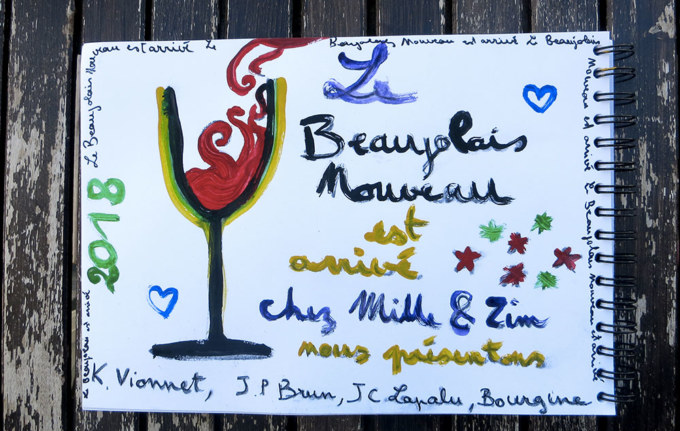 Le Beaujolais Nouveau est arrivé Le Beaujolais Nouveau est arrivé Le Beaujolais
Nouveau est arrivé Le Beaujolais Nouveau est arrivé
2018
Le
Beaujolais
Nouveau
est
arrivé
chez Mille & Zim
nous présentons
K. Vionnet, J.P Brun, JC Lapalu, Bourgine